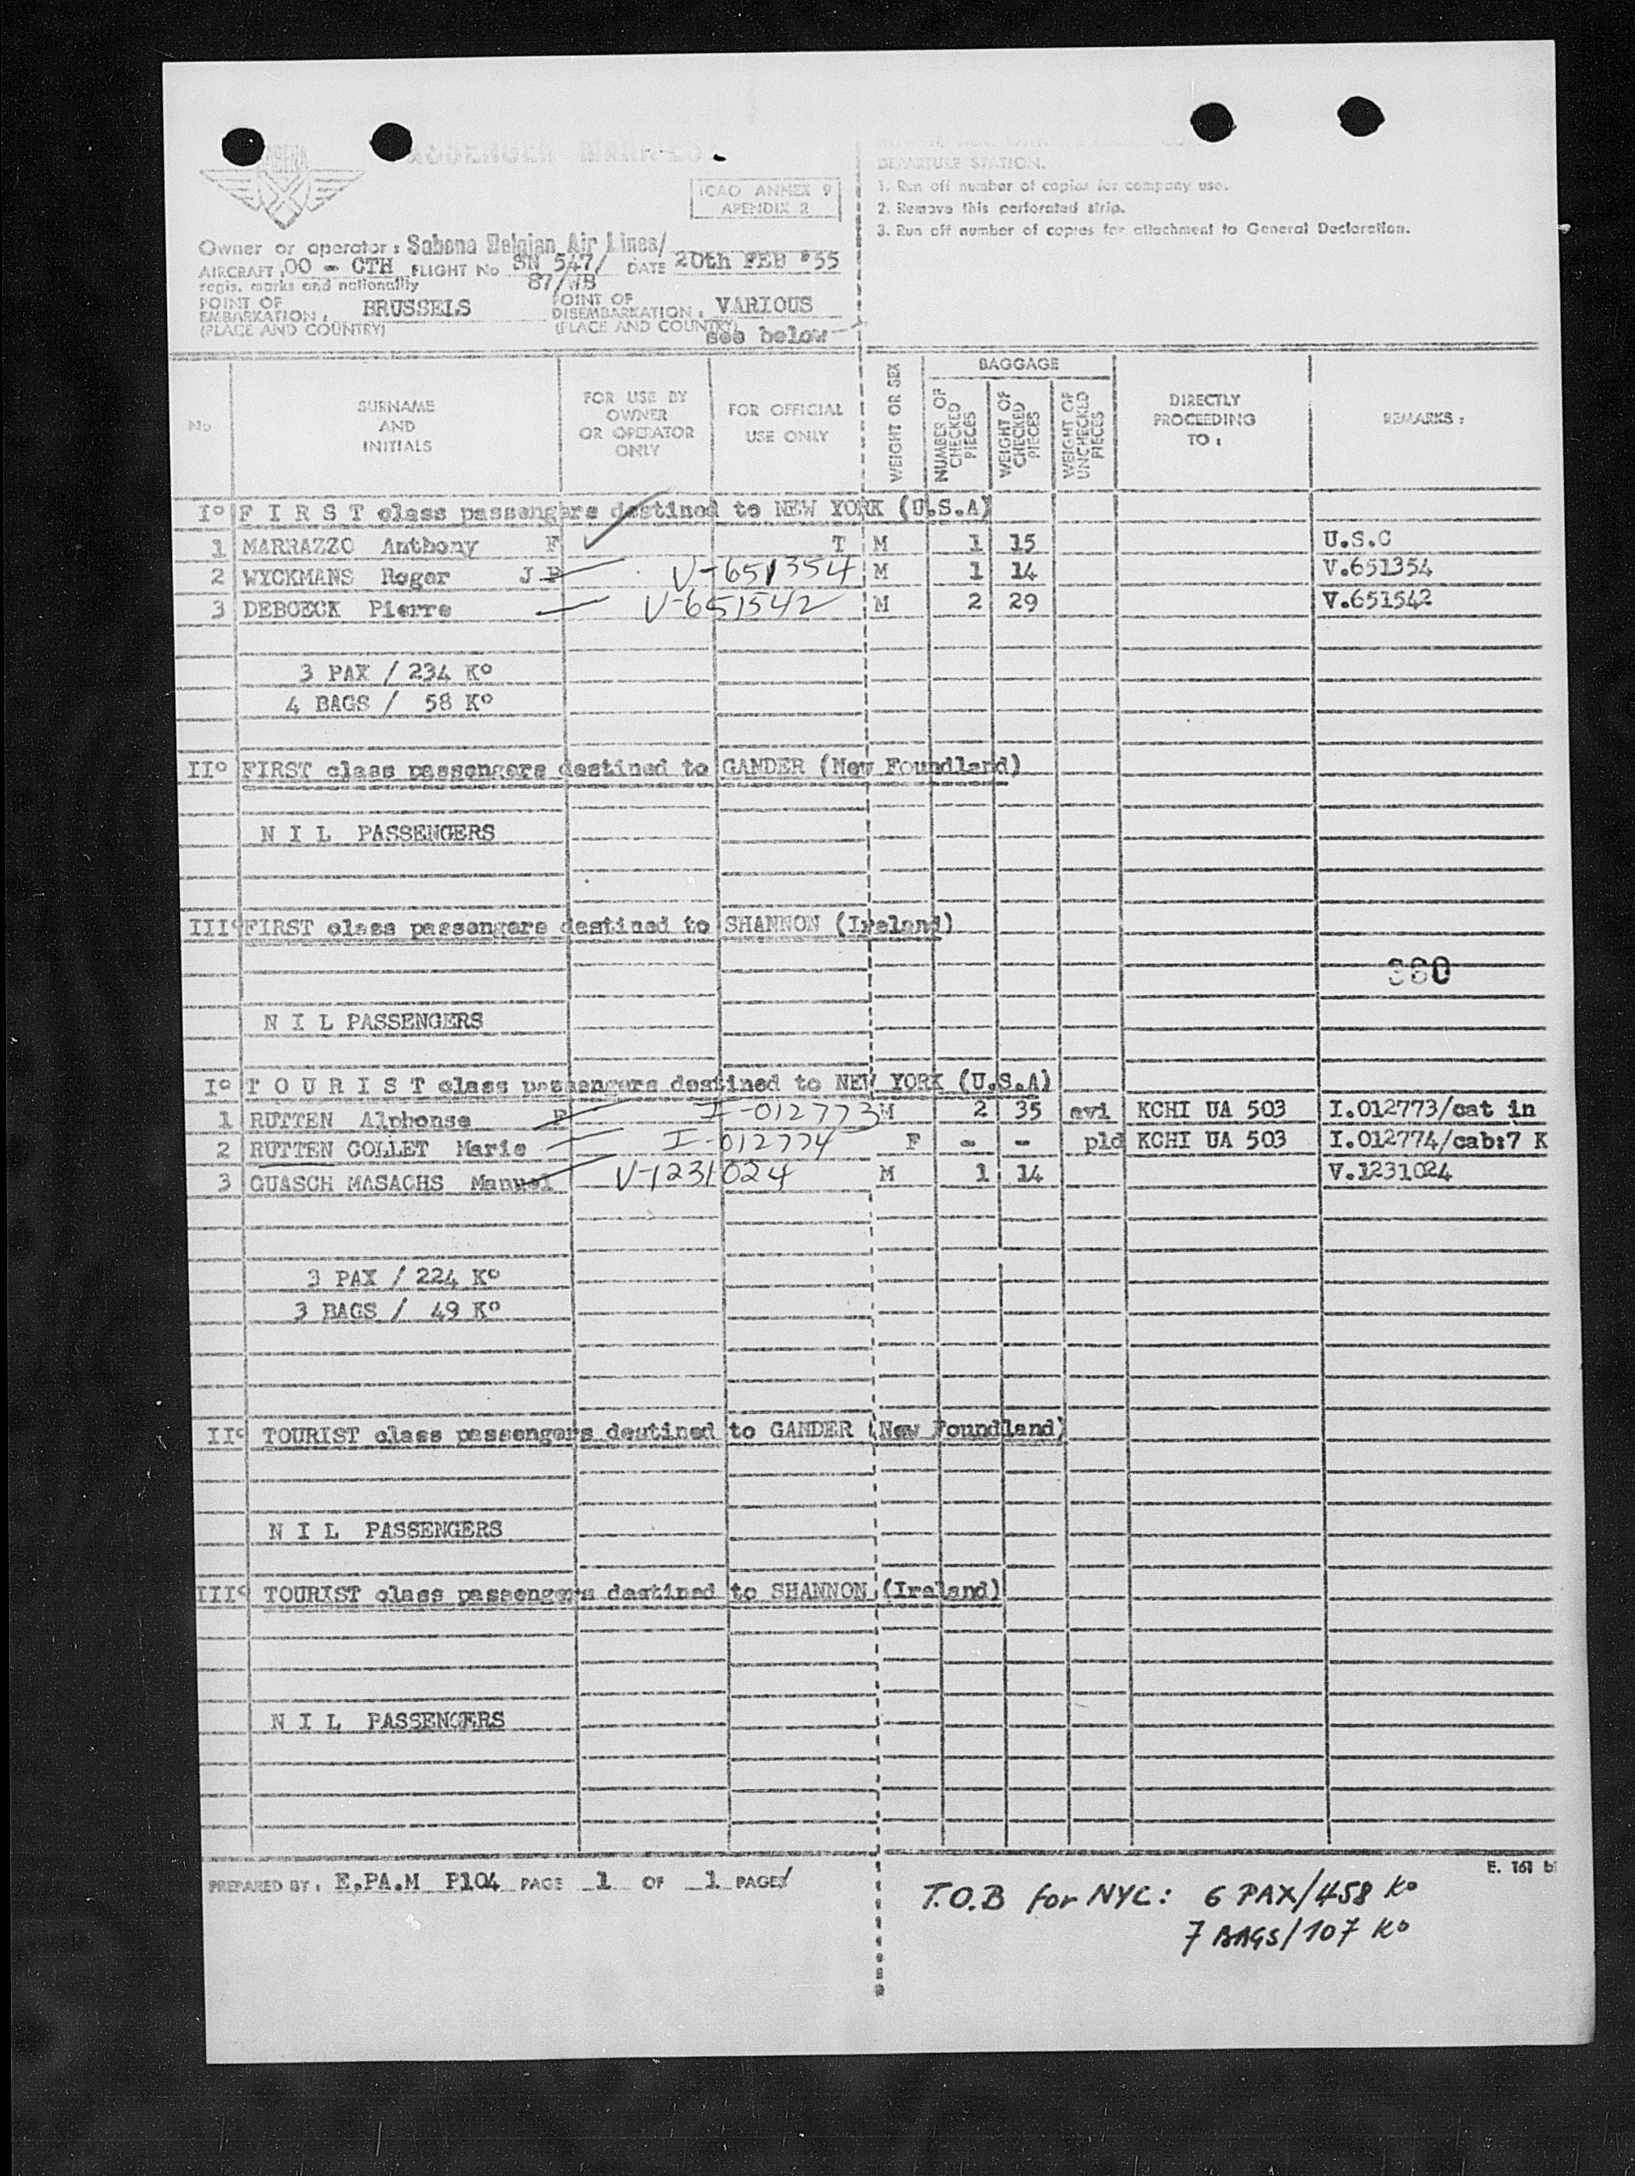 ICAO ANNEX 9
APENDIX 2
DEPARTURE STATION.
1. Run off number of copies for company use.
2. Remove this perforated strip.
3. Run off number of copies for attachment to General Declaration.
Owner or operator : Sabena Belgian Air Lines/
AIRCRAFT : OO - CTH FLIGHT No SN 547/ DATE 20th FEB '55
regis. marks and nationality 87/WB
POINT OF EMBARKATION : BRUSSELS POINT OF DISEMBARKATION : VARIOUS
(PLACE AND COUNTRY) (PLACE AND COUNTRY) see below
No
SURNAME AND INITIALS
FOR USE BY OWNER OR OPERATOR ONLY
FOR OFFICIAL USE ONLY
WEIGHT OR SEX
BAGGAGE
NUMBER OF CHECKED PIECES
WEIGHT OF CHECKED PIECES
WEIGHT OF UNCHECKED PIECES
DIRECTLY PROCEEDING TO :
REMARKS :
I° F I R S T class passengers destined to NEW YORK (U.S.A)
1 MARRAZZO Anthony F T M 1 15 U.S.C
2 WYCKMANS Roger J P V-651354 M 1 14 V.651354
3 DEBOECK Pierre V-651542 M 2 29 V.651542
3 PAX / 234 K°
4 BAGS / 58 K°
II° FIRST class passengers destined to GANDER (New Foundland)
N I L PASSENGERS
III° FIRST class passengers destined to SHANNON (Ireland)
360
N I L PASSENGERS
I° T O U R I S T class passengers destined to NEW YORK (U.S.A)
1 RUTTEN Alphonse F I-012773 M 2 35 avi KCHI UA 503 I.012773/cat in
2 RUTTEN COLLET Marie I-012774 F - - pld KCHI UA 503 I.012774/cab:7 K
3 GUASCH MASACHS Manuel V-1231024 M 1 14 V.1231024
3 PAX / 224 K°
3 BAGS / 49 K°
II° TOURIST class passengers destined to GANDER (New Foundland)
N I L PASSENGERS
III° TOURIST class passengers destined to SHANNON (Ireland)
N I L PASSENGERS
E. 161 b
PREPARED BY : E.PA.M P104 PAGE 1 OF 1 PAGES
T.O.B for NYC : 6 PAX/458 K°
7 BAGS/107 K°